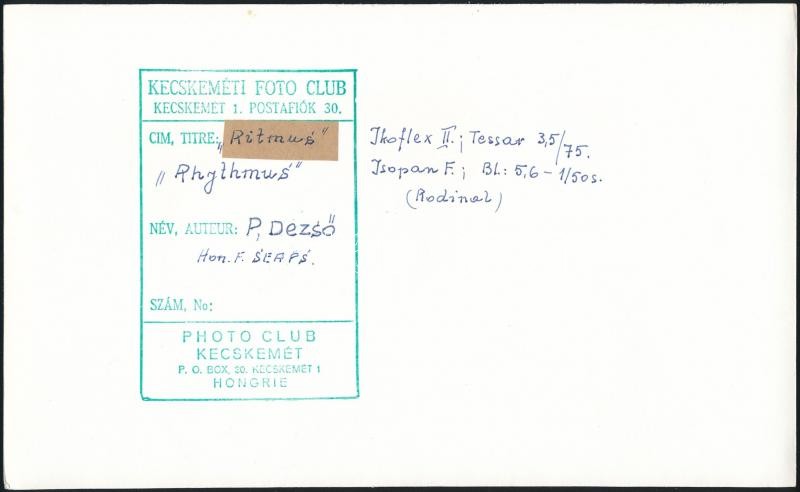 KECSKEMÉTI FOTO CLUB
KECSKEMÉT 1. POSTAFIÓK 30.
CIM, TITRE: „Ritmus"
„Rhythmus"
NÉV, AUTEUR: P, Dezső
Hon. F. SEAPS.
SZÁM, No:
PHOTO CLUB
KECSKEMÉT
P. O. BOX, 30. KECSKEMÉT 1
HONGRIE
Ikoflex II.; Tessar 3,5/75.
Isopan F.; Bl.: 5,6 - 1/50 s.
(Rodinal)